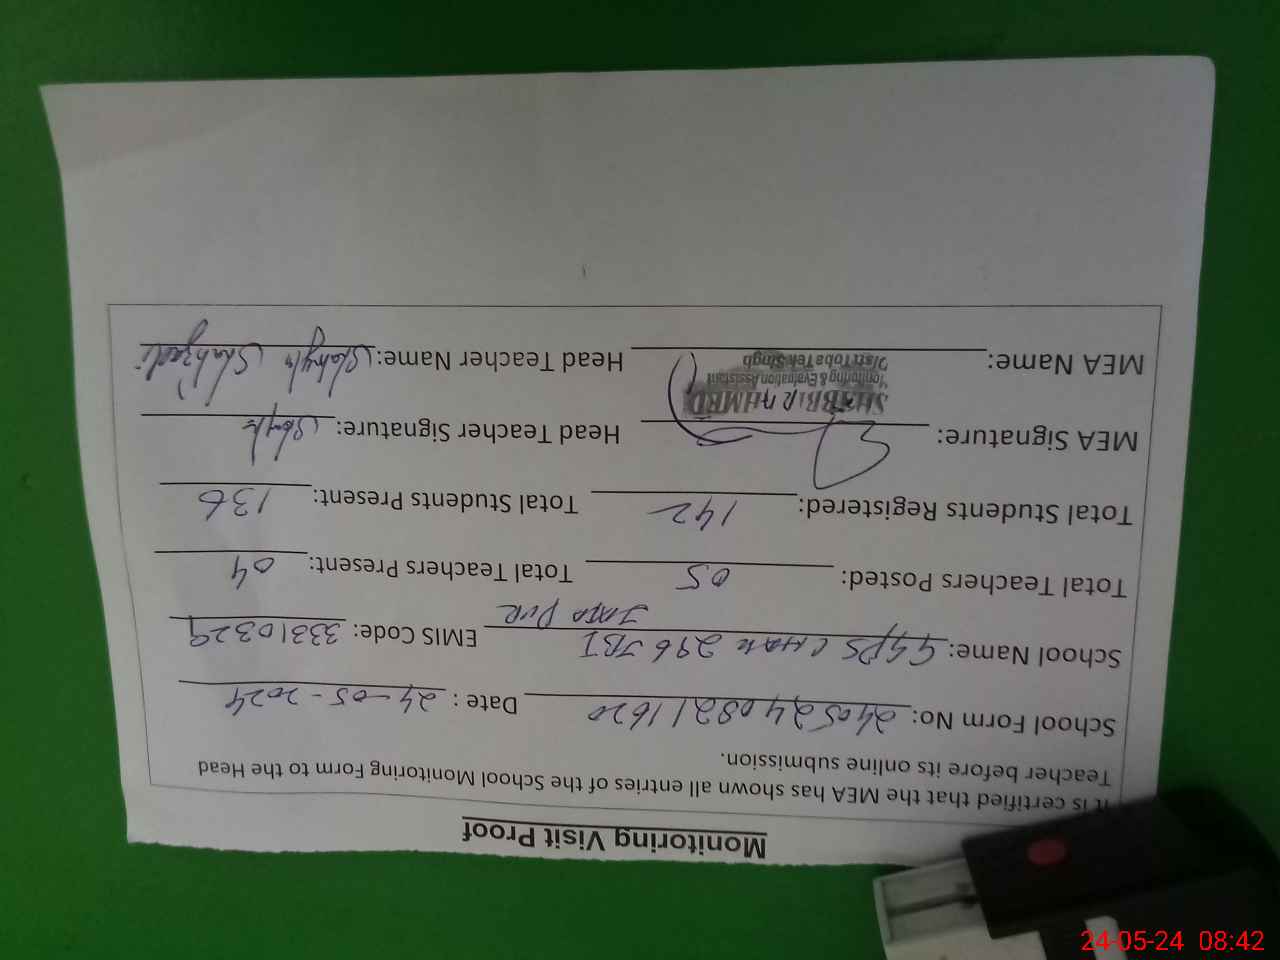 Monitoring Visit Proof
It is certified that the MEA has shown all entries of the School Monitoring Form to the Head
Teacher before its online submission.
School Form No: 24052408211620 Date : 24-05-2024
School Name: GGPS CHAK 296 JBI EMIS Code: 33310329
PUR
Total Teachers Posted: 05 Total Teachers Present: 04
Total Students Registered: 142 Total Students Present: 136
MEA Signature: Head Teacher Signature:
SHABBIR AHMED
Monitoring & Evaluation Assistant
Distt Toba Tek Singh
MEA Name: Head Teacher Name: Shahzadi
24-05-24 08:42